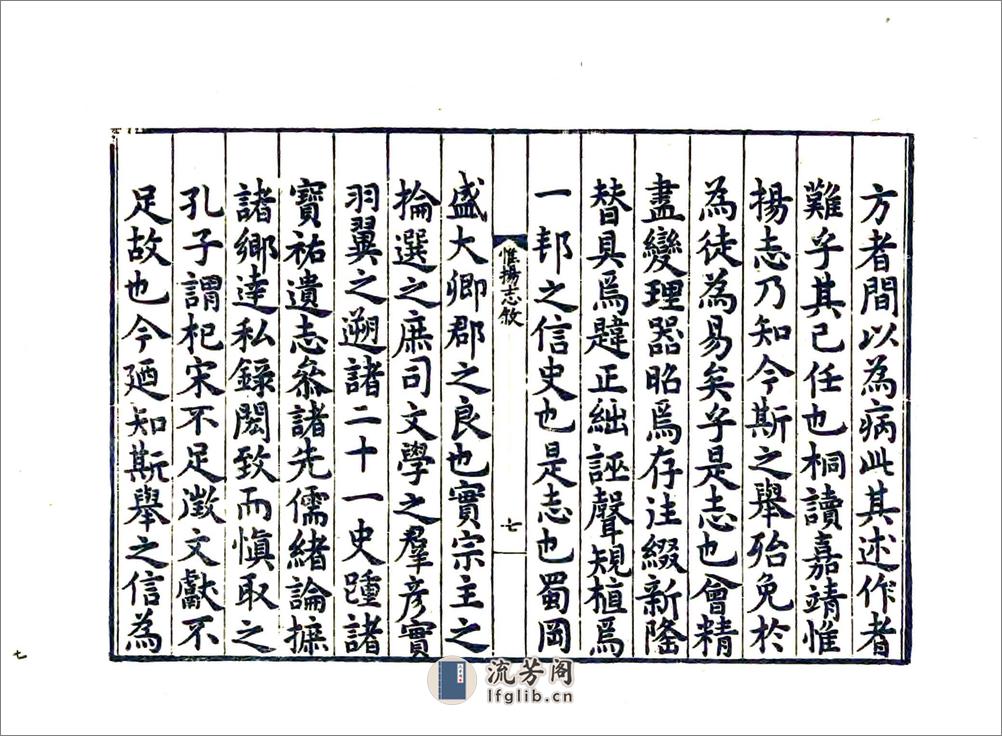 方者間以為病此其述作者
難乎其已任也桐讀嘉靖惟
揚志乃知今斯之舉殆免於
為徒為易矣乎是志也會精
盡變理器昭焉存注綴新隆
替具焉韙正絀誣聲規植焉
一邦之信史也是志也蜀岡
惟揚志敘
七
盛大卿郡之良也實宗主之
掄選之庶司文學之羣彥實
羽翼之遡諸二十一史踵諸
寶祐遺志叅諸先儒緒論摭
諸鄉達私錄閎致而慎取之
孔子謂杞宋不足徵文獻不
足故也今廼知斯舉之信為
七
流芳阁
lfglib.cn